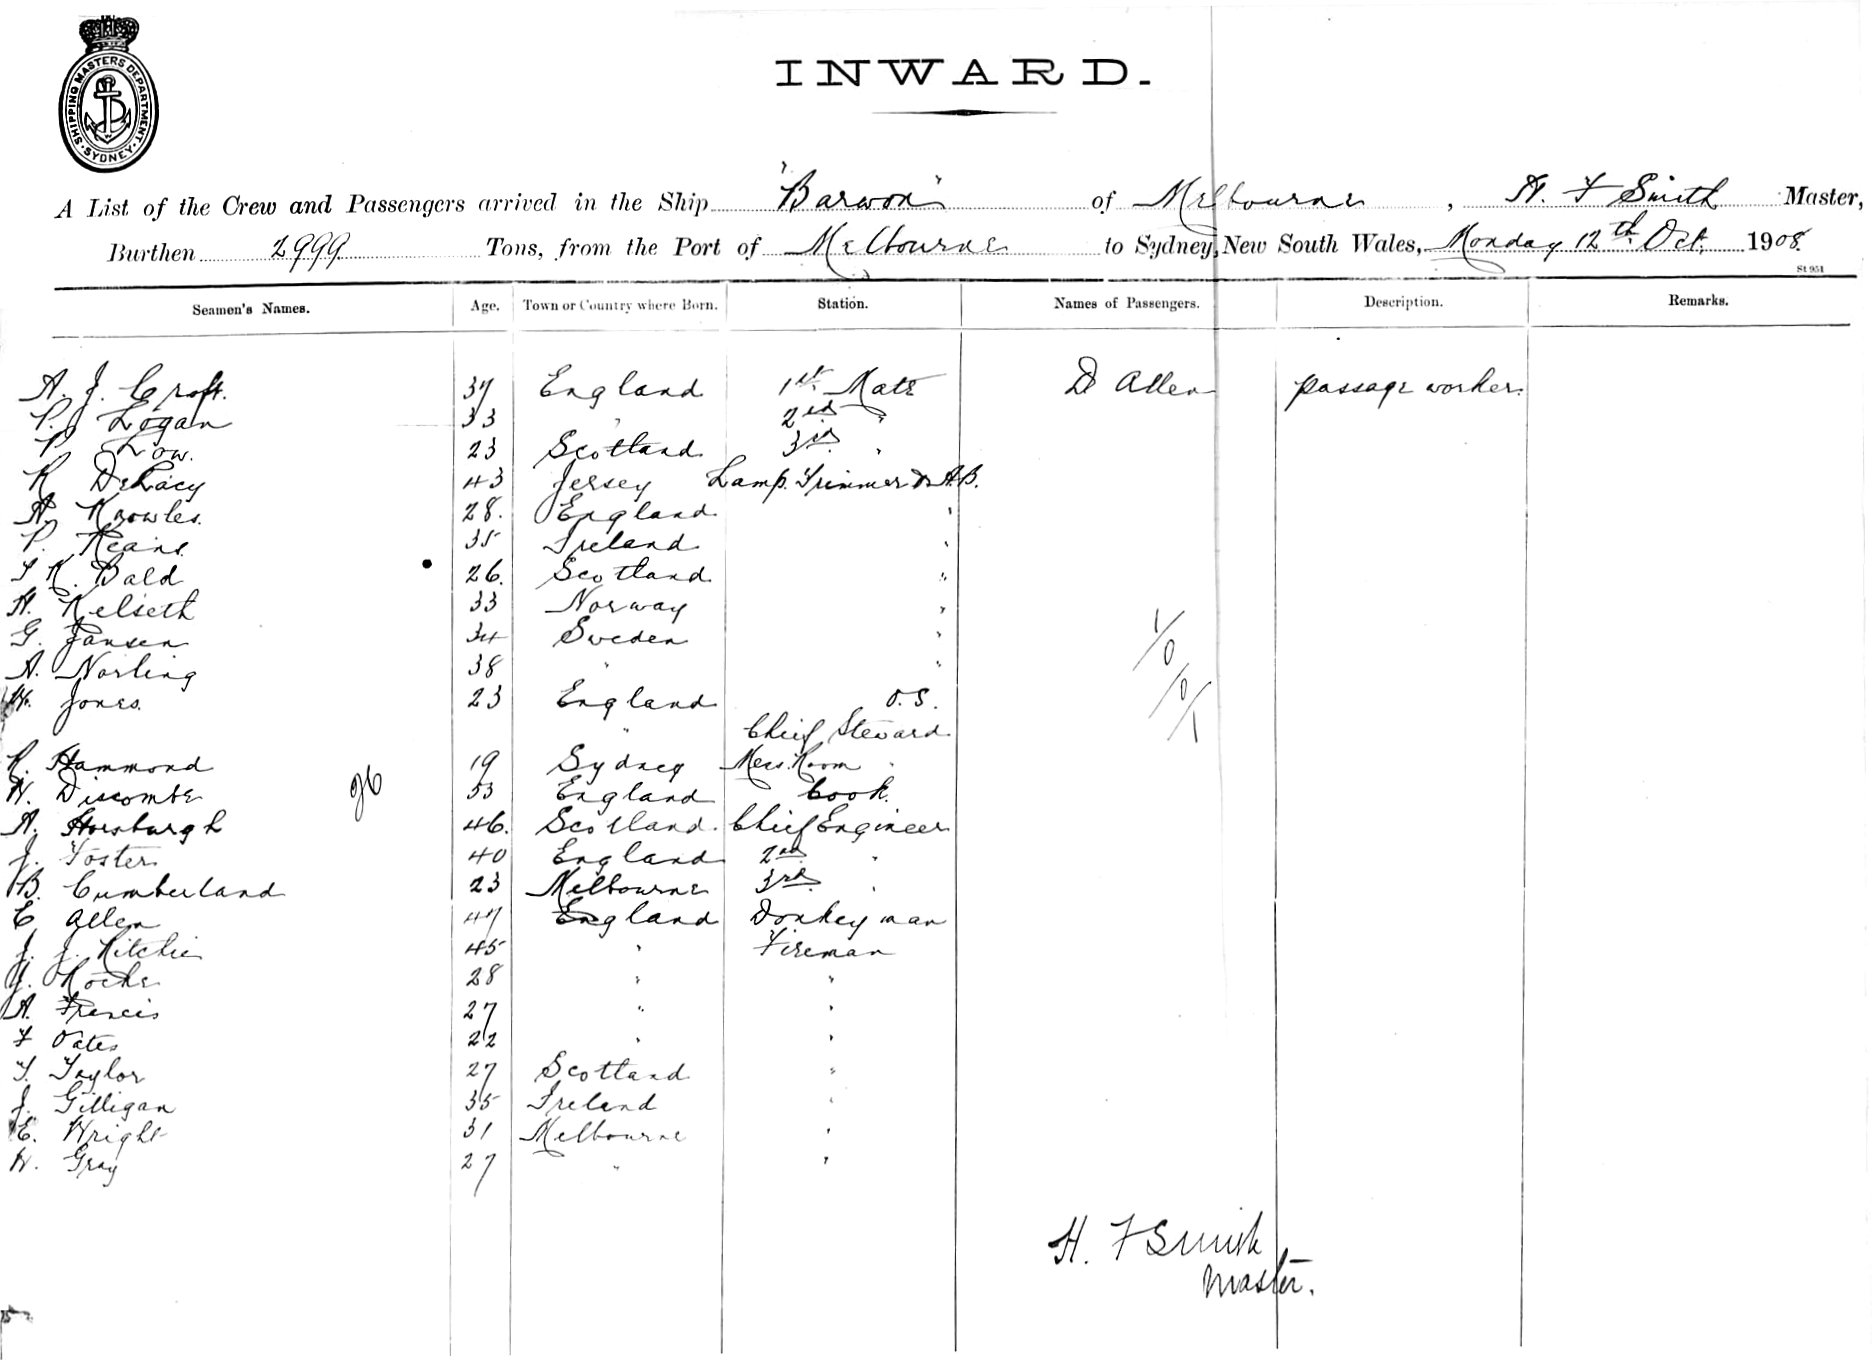 SHIPPING MASTERS DEPARTMENT. SYDNEY.
INWARD.
A List of the Crew and Passengers arrived in the Ship "Barwon" of Melbourne, H. F Smith Master,
Burthen 2999 Tons, from the Port of Melbourne to Sydney, New South Wales, Monday 12th Oct. 1908
St 951
Seamen's Names. Age. Town or Country where Born. Station. Names of Passengers. Description. Remarks.
A. J. Croft. 37 England 1st Mate D Allen passage worker.
P. J Logan 33 " 2nd "
P. Low. 23 Scotland 3rd "
R DeLacy 43 Jersey Lamp. Trimmer & A.B.
A. Knowles. 28. England "
P. Keane 35 Ireland "
T R. Bald 26. Scotland "
H. Kelseth 33 Norway "
G. Jansen 34 Sweden "
A. Norling 38 " "
W. Jones. 23 England O.S.
" Chief Steward
R. Hammond 19 Sydney Mess. Room "
W. Discombe 53 England Cook.
A. Horsburgh 46. Scotland. Chief Engineer
J. Foster 40 England 2nd "
B. Cumberland 23 Melbourne 3rd "
26
E Allen 47 England Donkeyman
J. J. Ritchie 45 " Fireman
J. Roche 28 " "
A. Francis 27 " "
F Oates 22 " "
T. Taylor 27 Scotland "
J. Gilligan 35 Ireland "
E. Wright 31 Melbourne "
W. Gray 27 " "
1/0/0/1
H. F Smith
Master.